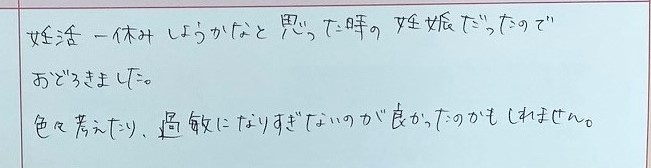 妊活 一休みしようかなと思った時の妊娠だったので
おどろきました。
色々考えたり、過敏になりすぎないのが良かったのかもしれません。